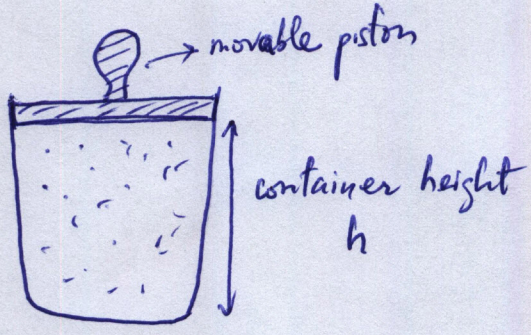 movable piston
container height
h